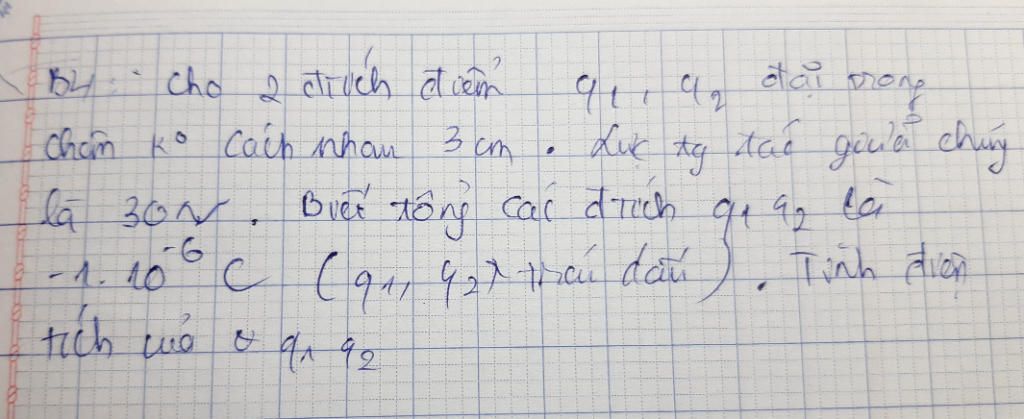 B4: Cho 2 đtích điểm q1, q2 đặt trong
chân ko cách nhau 3 cm. Lực tg tác giữa chúng
là 30N. Biết tổng các đtích q1 q2 là
-1.10^-6 C (q1, q2 trái dấu). Tính điện
tích của q1 q2